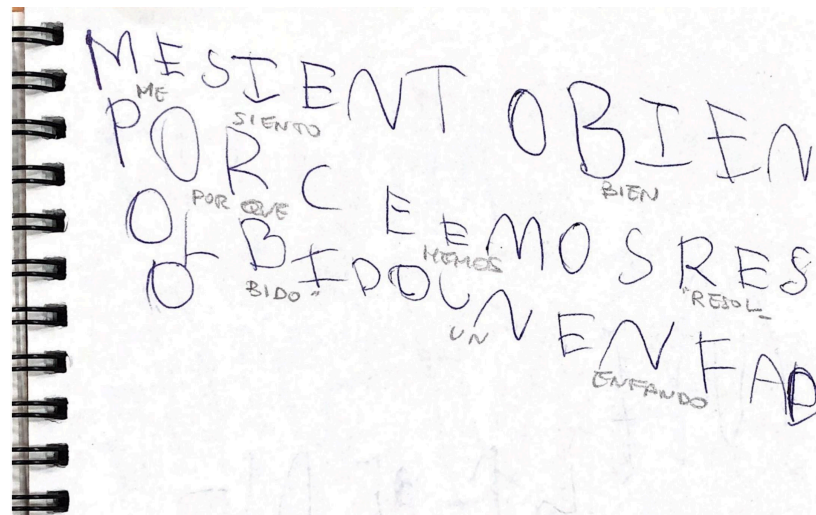 MESIENT OBIEN
ME SIENTO BIEN
PORCEEMOSRES
POR QUE HEMOS "RESOL_
OLBIDOUNENFAD
O
BIDO" UN ENFANDO